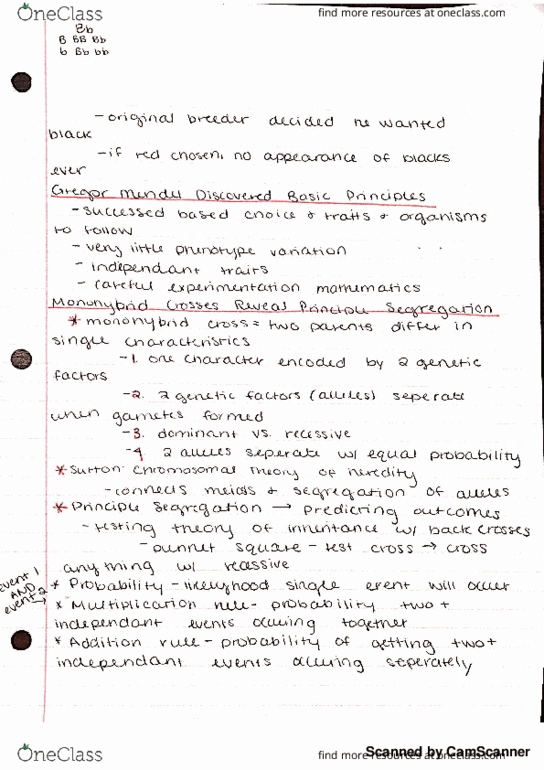 OneClass
find more resources at oneclass.com
Bb
B BB Bb
b Bb bb
-original breeder decided he wanted
black
-if red chosen, no appearance of blacks
ever
Gregor Mendel Discovered Basic Principles
-successed based choice & traits & organisms
to follow
-very little phenotype variation
-independant traits
-careful experimentation mathematics
Monohybrid Crosses Reveal Principle Segregation
* monohybrid cross = two parents differ in
single characteristics
-1. one character encoded by 2 genetic
factors
-2. 2 genetic factors (alleles) seperate
when gametes formed
-3. dominant vs. recessive
-4 2 alleles seperate w/ equal probability
* Sutton: Chromosomal Theory of heredity
-connects meiosis & segregation of alleles
* Principle Segregation → predicting outcomes
-testing theory of inheritance w/ back crosses
-punnet square - test cross → cross
anything w/ recessive
event 1
AND
event 2
* Probability - likelyhood single event will occur
* Multiplication rule - probability two +
independant events occuring together
* Addition rule - probability of getting two+
independant events occuring seperately
OneClass
find more resources at oneclass.com
Scanned by CamScanner